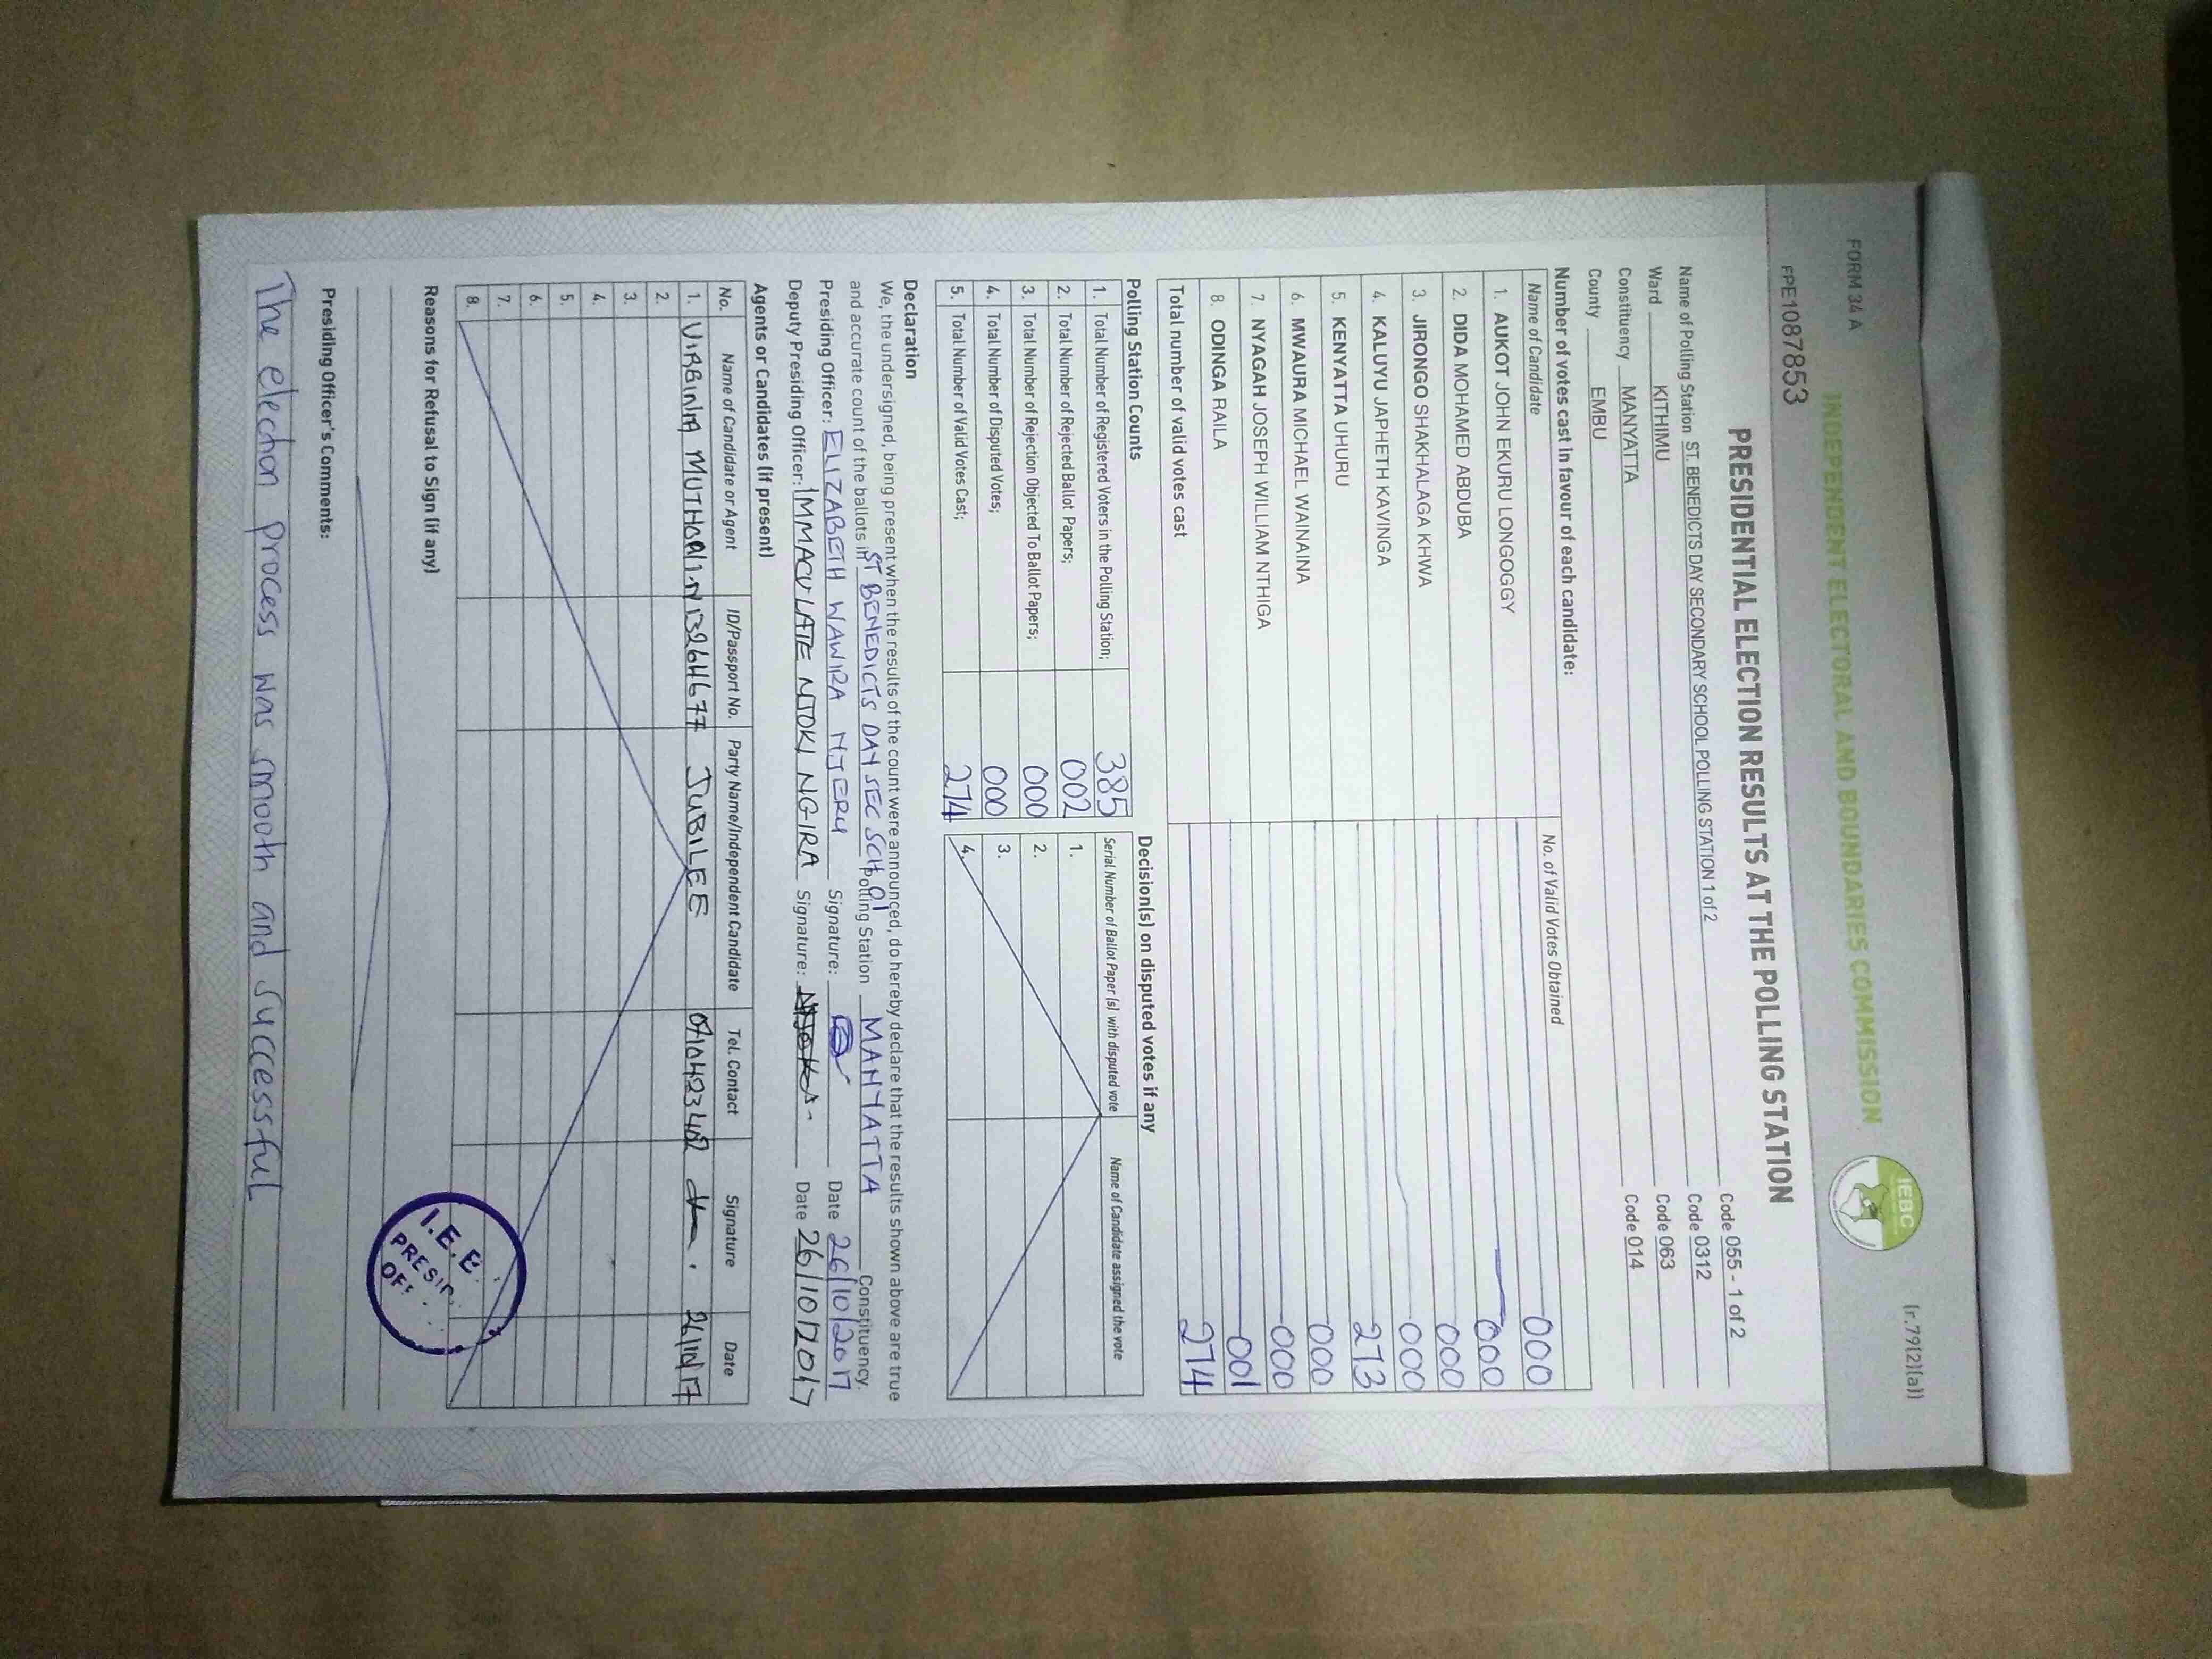 FORM 34 A
(r.79(2)(a))
INDEPENDENT ELECTORAL AND BOUNDARIES COMMISSION
IEBC
FPE1087853
PRESIDENTIAL ELECTION RESULTS AT THE POLLING STATION
Name of Polling Station ST. BENEDICTS DAY SECONDARY SCHOOL POLLING STATION 1 of 2 Code 055 - 1 of 2
Ward KITHIMU Code 0312
Constituency MANYATTA Code 063
County EMBU Code 014
Number of votes cast in favour of each candidate:
Name of Candidate No. of Valid Votes Obtained
1. AUKOT JOHN EKURU LONGOGGY 000
2. DIDA MOHAMED ABDUBA 000
3. JIRONGO SHAKHALAGA KHWA 000
4. KALUYU JAPHETH KAVINGA 000
5. KENYATTA UHURU 273
6. MWAURA MICHAEL WAINAINA 000
7. NYAGAH JOSEPH WILLIAM NTHIGA 000
8. ODINGA RAILA 001
Total number of valid votes cast 274
Polling Station Counts
1. Total Number of Registered Voters in the Polling Station; 385
2. Total Number of Rejected Ballot Papers; 002
3. Total Number of Rejection Objected To Ballot Papers; 000
4. Total Number of Disputed Votes; 000
5. Total Number of Valid Votes Cast; 274
Decision(s) on disputed votes if any
Serial Number of Ballot Paper (s) with disputed vote Name of Candidate assigned the vote
1.
2.
3.
4.
Declaration
We, the undersigned, being present when the results of the count were announced, do hereby declare that the results shown above are true
and accurate count of the ballots in ST BENEDICTS DAY SEC SCH 01 Polling Station MANYATTA Constituency.
Presiding Officer: ELIZABETH WAWIRA NJERU Signature: Date 26/10/2017
Deputy Presiding Officer: IMMACULATE NJOKI NGIRA Signature: Date 26/10/2017
Agents or Candidates (if present)
No. Name of Candidate or Agent ID/Passport No. Party Name/Independent Candidate Tel. Contact Signature Date
1. VIRGINIA JUBILEE 26/10/17
2.
3.
4.
5.
6.
7.
8.
I.E.
PRESI
OF
Reasons for Refusal to Sign (if any)
Presiding Officer's Comments:
The election process was smooth and successful